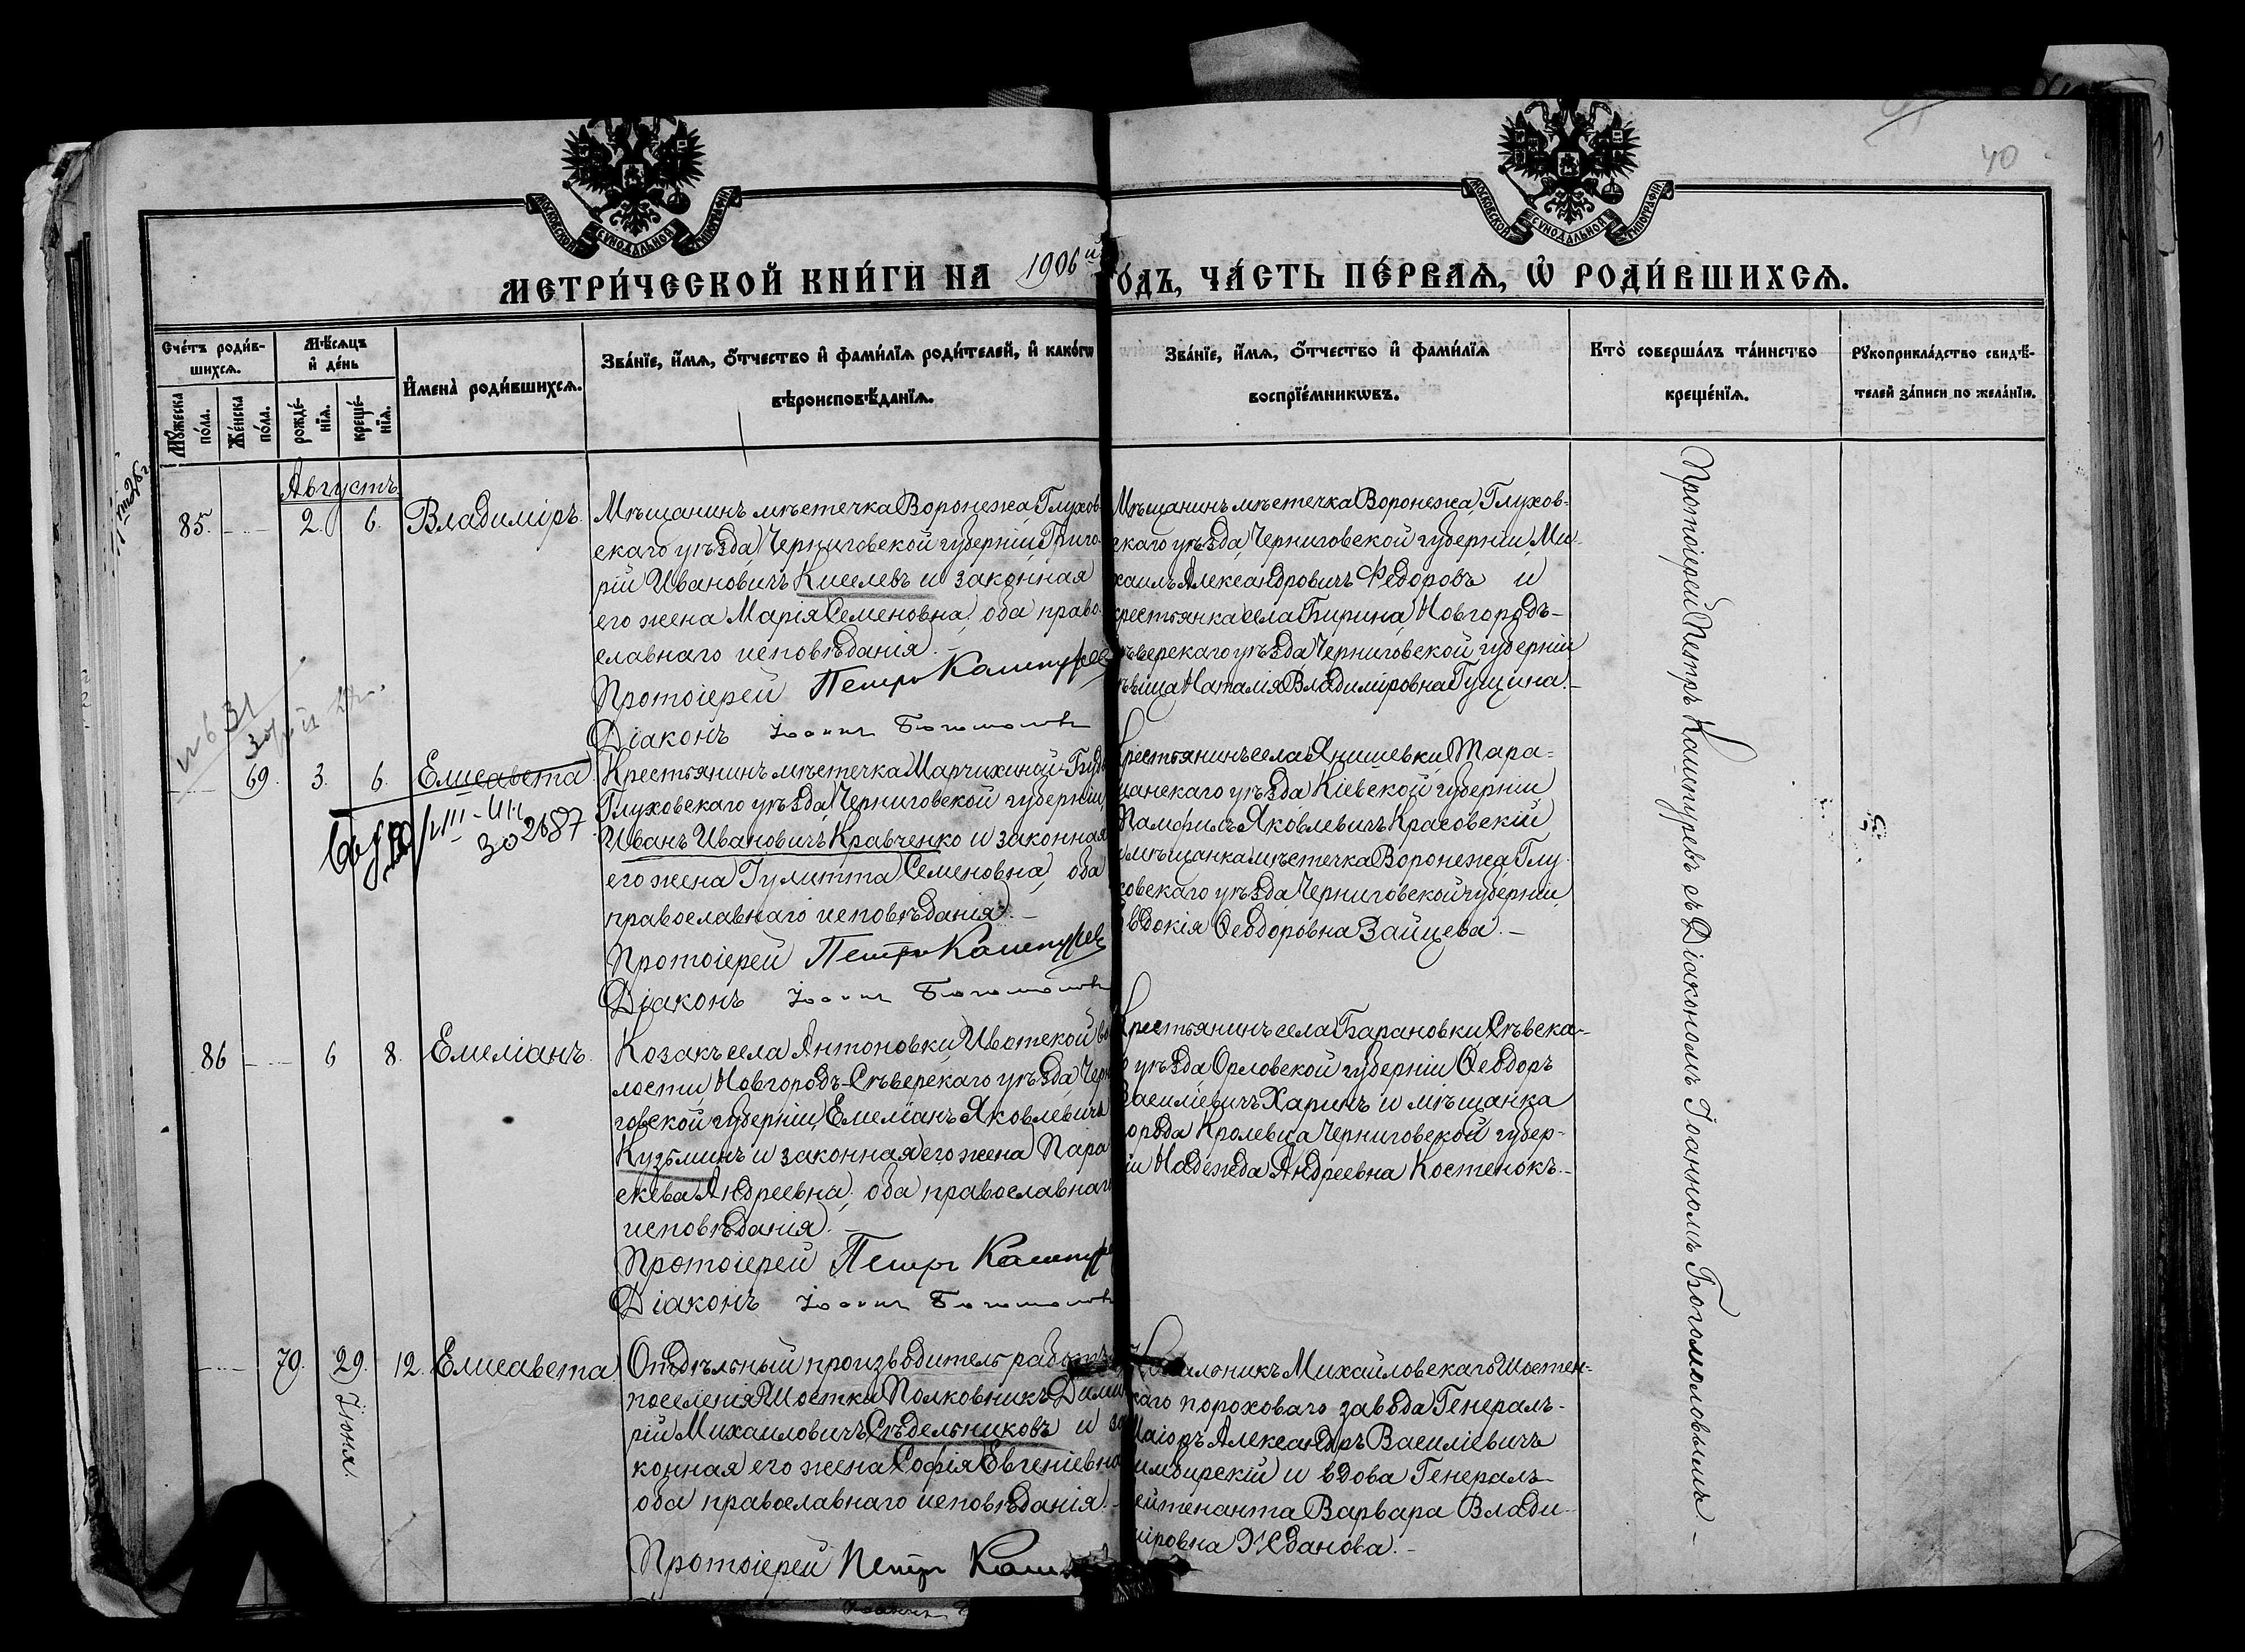 40
МОСКОВСКОЙ СѴНОДАЛЬНОЙ ТИПОГРАФІИ
МОСКОВСКОЙ СѴНОДАЛЬНОЙ ТИПОГРАФІИ
МЕТРИ́ЧЕСКОЙ КНИ́ГИ НА 1906й ГО́ДЪ, ЧА́СТЬ ПЕ́РВАЯ, Ѡ҆ РОДИ́ВШИХСЯ.
Сче́тъ роди́в-
шихся.
Мꙋ́жеска по́ла.
Же́нска по́ла.
Мѣ́сяцъ и҆ де́нь
рожде́-нїя.
креще́-нїя.
И҆мена̀ роди́вшихся.
Зва́нїе, и҆́мя, ѻ҆́тчество и҆ фами́лїя роди́телей, и҆ како́гѡ
вѣроисповѣ́данїя.
Зва́нїе, и҆́мя, ѻ҆́тчество и҆ фами́лїя
воспрїе́мникѡвъ.
Кто̀ соверша́лъ та́инство
креще́нїя.
Рꙋкоприкла́дство свидѣ́-
телей за́писи по жела́нїю.
Августъ
85. 2. 6. Владиміръ.
Мѣщанинъ мѣстечка Воронежа, Глухов-
скаго уѣзда, Черниговской губерніи, Григо-
рій Ивановичъ Киселевъ и законная
его жена Марія Семеновна, оба право-
славнаго исповѣданія.
Протоіерей Петръ Кашпуревъ
Діаконъ Іоаннъ Богомоловъ
Мѣщанинъ мѣстечка Воронежа, Глухов-
скаго уѣзда, Черниговской губерніи, Ми-
хаилъ Александровичъ Федоровъ и
крестьянка села Бирина, Новгородъ-
Сѣверскаго уѣзда, Черниговской губерніи
дѣвица Наталія Владиміровна Гущина.
69. 3. 6. Елисавета
302687
Крестьянинъ мѣстечка Марчихиной-Буды
Глуховскаго уѣзда, Черниговской губерніи
Иванъ Ивановичъ Кравченко и законная
его жена Іулитта Семеновна, оба
православнаго исповѣданія.
Протоіерей Петръ Кашпуревъ
Діаконъ Іоаннъ Богомоловъ
Крестьянинъ села Янишевки, Тара-
щанскаго уѣзда Кіевской губерніи
Памфилъ Яковлевичъ Красовскій
и мѣщанка мѣстечка Воронежа, Глу-
ховскаго уѣзда Черниговской губерніи,
Евдокія Ѳеодоровна Зайцева.
86 6 8. Емеліанъ.
Козакъ села Антоновки, Ивотской во-
лости, Новгородъ-Сѣверскаго уѣзда, Черни-
говской губерніи, Емеліанъ Яковлевичъ
Кузьминъ и законная его жена Пара-
скева Андреевна, оба православнаго
исповѣданія.
Протоіерей Петръ Кашпуревъ
Діаконъ Іоаннъ Богомоловъ
Крестьянинъ села Барановки, Сѣвска-
го уѣзда Орловской губерніи Ѳеодоръ
Василіевичъ Харинъ и мѣщанка
города Кролевца Черниговской губер-
ніи Надежда Андреевна Костенокъ.
70. 29. Іюня. 12. Елисавета
Отдѣльный производитель работъ
поселенія Шостки Полковникъ Дими-
рій Михаиловичъ Сѣдельниковъ и за-
конная его жена Софія Евгеніевна
оба православнаго исповѣданія.
Протоіерей Петръ
Начальникъ Михайловскаго Шостен-
скаго пороховаго завода Генералъ-
Маіоръ Александръ Василіевичъ
Симбирскій и вдова Генералъ-
Лейтенанта Варвара Влади-
міровна Жданова.
Протоіерей Петръ Кашпуревъ съ Діакономъ Іоанномъ Богомоловымъ